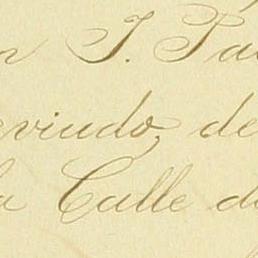 n J. Pa
viudo, de
a Calle d